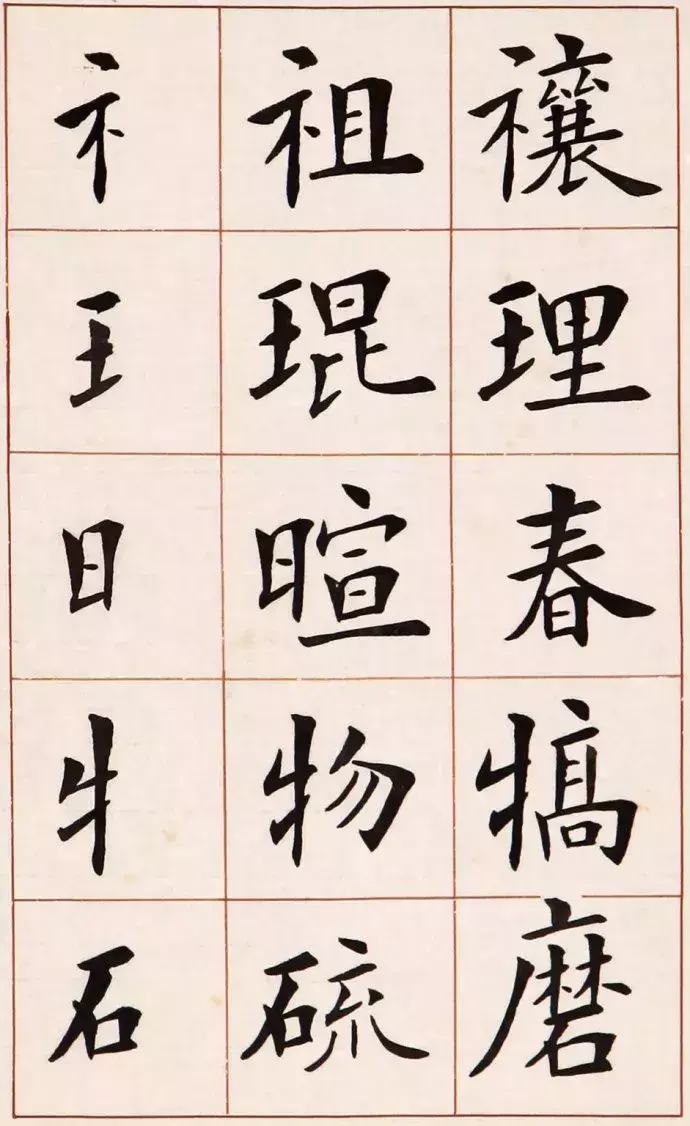 礻祖禳
王琨理
日暄春
牜物犒
石硫磨